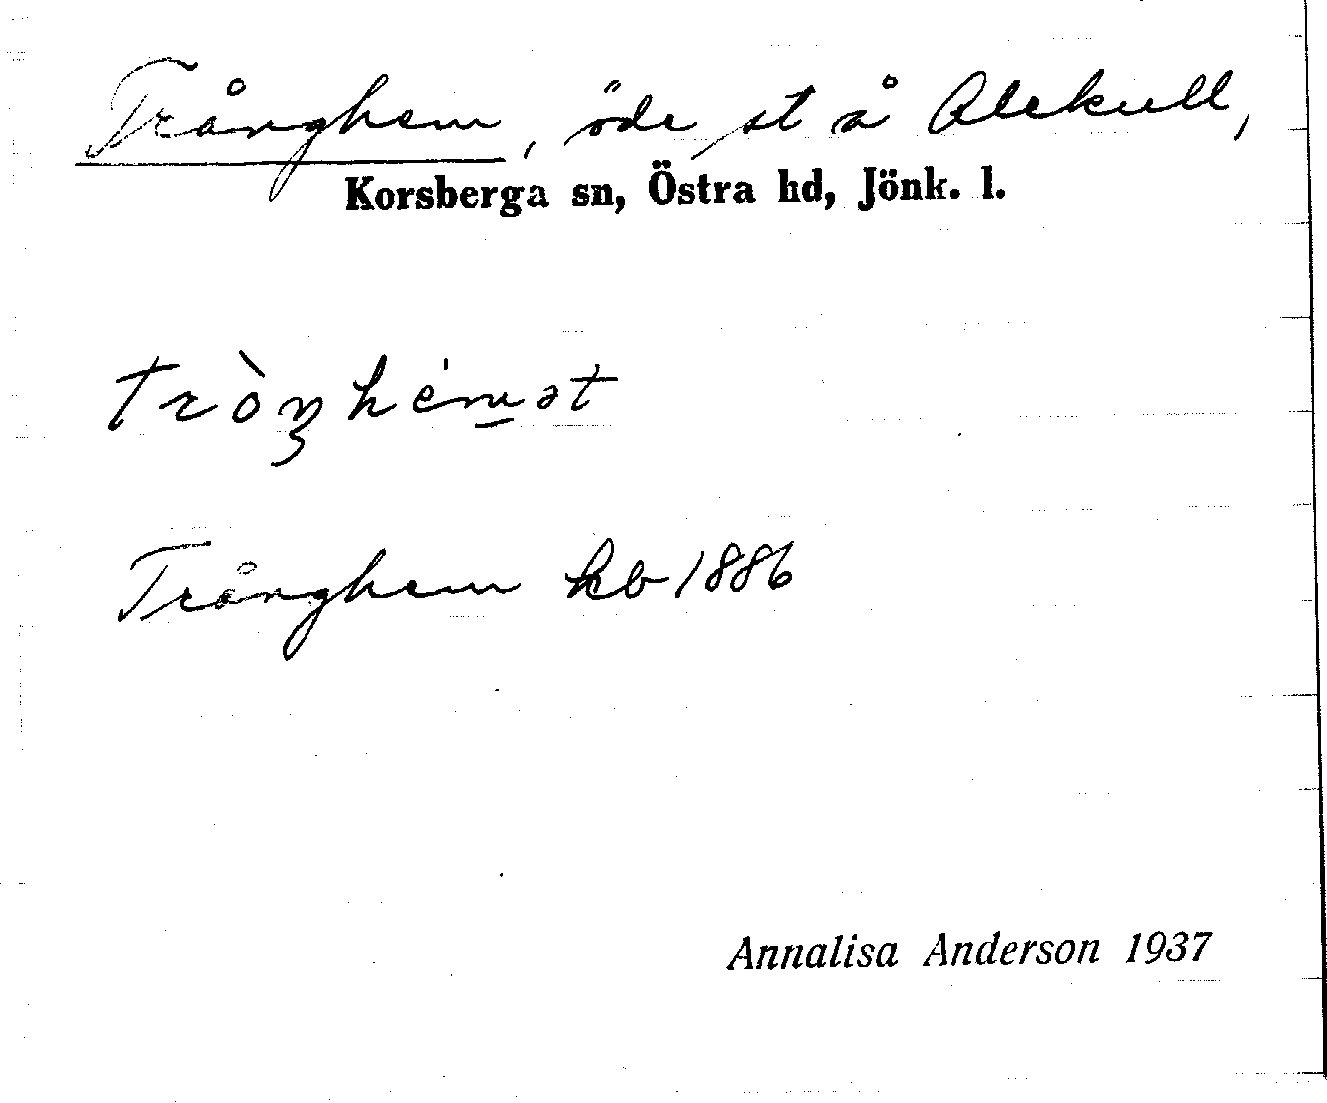 Trånghem, öde, st å Alekull,
Korsberga sn, Östra hd, Jönk. l.
tròŋhémət
Trånghem kb 1886
Annalisa Anderson 1937